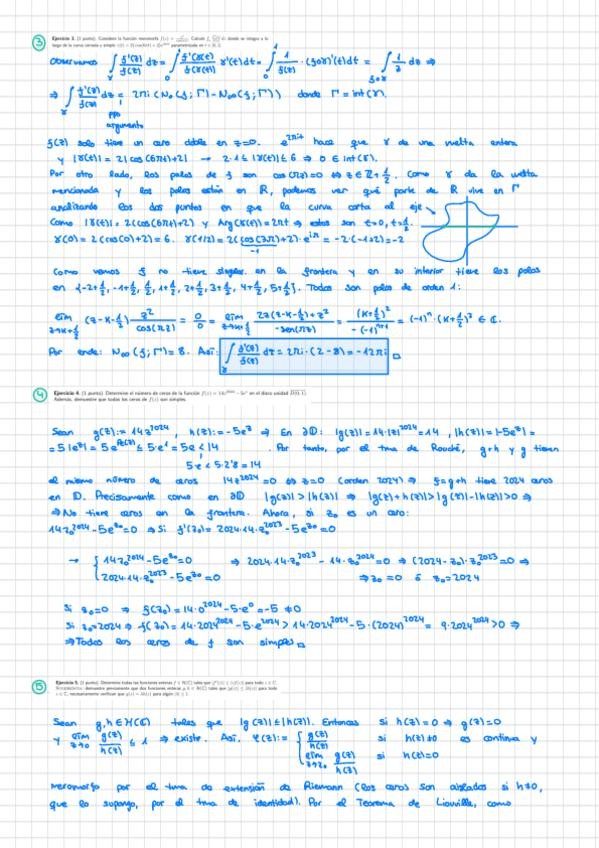 3 Ejercicio 3. (2 puntos). Considera la función meromorfa f(z) = z²/cos(πz). Calcula ∫ f'(z)/f(z) dz donde se integra a lo
largo de la curva cerrada y simple
Observamos ∫ f'(z)/f(z) dz = ∫ f'(γ(t))/f(γ(t)) γ'(t)dt = ∫ 1/f(z) · (f∘γ)'(t)dt = ∫ 1/z dz ⇒
⇒ ∫ f'(z)/f(z) dz = 2πi (N₀(f;Γ) - N∞(f;Γ)) donde Γ = int(γ).
ppo
argumento
f(z) solo tiene un cero doble en z=0. e^{2πit} hace que γ de una vuelta entera
y |γ(t)| = 2|cos(6πt)+2| → 2·1 ≤ |γ(t)| ≤ 6 ⇒ 0 ∈ int(γ).
Por otro lado, los polos de f son cos(πz)=0 ⇔ z ∈ ℤ+1/2. Como γ da la vuelta
mencionada y los polos están en ℝ, podemos ver qué parte de ℝ vive en Γ
analizando los dos puntos en que la curva corta al eje
Como |γ(t)| = 2(cos(6πt)+2) y Arg(γ(t)) = 2πt ⇒ estos son t=0, t=1/2.
γ(0) = 2(cos(0)+2) = 6. γ(1/2) = 2(cos(3π)+2)·e^{iπ} = -2·(-1+2) = -2
-1
Como vemos f no tiene singular. en la frontera y en su interior tiene los polos
en {-2+1/2, -1+1/2, 1/2, 1+1/2, 2+1/2, 3+1/2, 4+1/2, 5+1/2}. Todos son polos de orden 1:
lím z→k+1/2 (z-k-1/2) z²/cos(πz) = 0/0 = lím z→k+1/2 2z(z-k-1/2)+z² / -sen(πz) = (k+1/2)² / -(-1)ⁿ⁺¹ = (-1)ⁿ·(k+1/2)² ∈ ℂ.
Por ende: N∞(f;Γ) = 8. Así: ∫ f'(z)/f(z) dz = 2πi·(2-8) = -12πi □
4 Ejercicio 4. (1 punto). Determine el número de ceros de la función f(z) = 14z²⁰²⁴ - 5eᶻ en el disco unidad D(0,1).
Además, demuestre que todos los ceros de f(z) son simples.
Sean g(z) := 14z²⁰²⁴, h(z) := -5eᶻ ⇒ En ∂𝔻: |g(z)| = 14·|z|²⁰²⁴ = 14, |h(z)| = |-5eᶻ| =
= 5|eᶻ| = 5e^{Re(z)} ≤ 5·e¹ = 5e < 14. Por tanto, por el tma de Rouché, g+h y g tienen
5·e < 5·2'8 = 14
el mismo número de ceros 14z²⁰²⁴ = 0 ⇔ z=0 (orden 2024) ⇒ f=g+h tiene 2024 ceros
en 𝔻. Precisamente como en ∂𝔻 |g(z)| > |h(z)| ⇒ |g(z)+h(z)| ≥ |g(z)|-|h(z)| > 0 ⇒
⇒ No tiene ceros en la frontera. Ahora, si z₀ es un cero:
14z₀²⁰²⁴ - 5e^{z₀} = 0 ⇒ Si f'(z₀) = 2024·14·z₀²⁰²³ - 5e^{z₀} = 0
→ { 14z₀²⁰²⁴ - 5e^{z₀} = 0 ⇒ 2024·14·z₀²⁰²³ - 14·z₀²⁰²⁴ = 0 ⇒ (2024-z₀)·z₀²⁰²³ = 0 ⇒
2024·14·z₀²⁰²³ - 5e^{z₀} = 0 ⇒ z₀=0 ó z₀=2024
Si z₀=0 ⇒ f(z₀) = 14·0²⁰²⁴ - 5·e⁰ = -5 ≠ 0
Si z₀=2024 ⇒ f(z₀) = 14·2024²⁰²⁴ - 5·e²⁰²⁴ > 14·2024²⁰²⁴ - 5·(2024)²⁰²⁴ = 9·2024²⁰²⁴ > 0 ⇒
⇒ Todos los ceros de f son simples □
5 Ejercicio 5. (2 puntos). Determine todas las funciones enteras f ∈ H(ℂ) tales que |f'(z)| ≤ |f(z)| para todo z ∈ ℂ.
Sugerencia: demuestre previamente que dos funciones enteras g, h ∈ H(ℂ) tales que |g(z)| ≤ |h(z)| para todo
z ∈ ℂ, necesariamente verifican que g(z) = λh(z) para algún |λ| ≤ 1.
Sean g,h ∈ H(ℂ) tales que |g(z)| ≤ |h(z)|. Entonces si h(z)=0 ⇒ g(z)=0
y lím z→z₀ g(z)/h(z) ≤ 1 ⇒ existe. Así, φ(z) := { g(z)/h(z) si h(z)≠0 es continua y
lím z→z₀ g(z)/h(z) si h(z)=0
meromorfa por el tma de extensión de Riemann (los ceros son aislados si h≢0,
que lo supongo, por el tma de identidad). Por el Teorema de Liouville, como